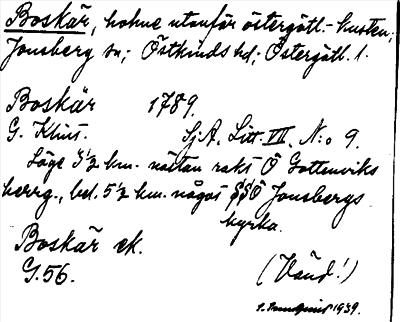 Boskär, holme utanför östergötl.-kusten;
Jonsberg sn; Östkinds hd; Östergötl. l.
Boskär 1789.
G. Klint. Sj.A. Litt. VII. N:o 9.
Läge 3½ km. nästan rakt Ö Gottenviks
herrg., bel. 5½ km. något SSÖ Jonsbergs
kyrka.
Boskär ek.
G.56. (Vänd!)
1939.